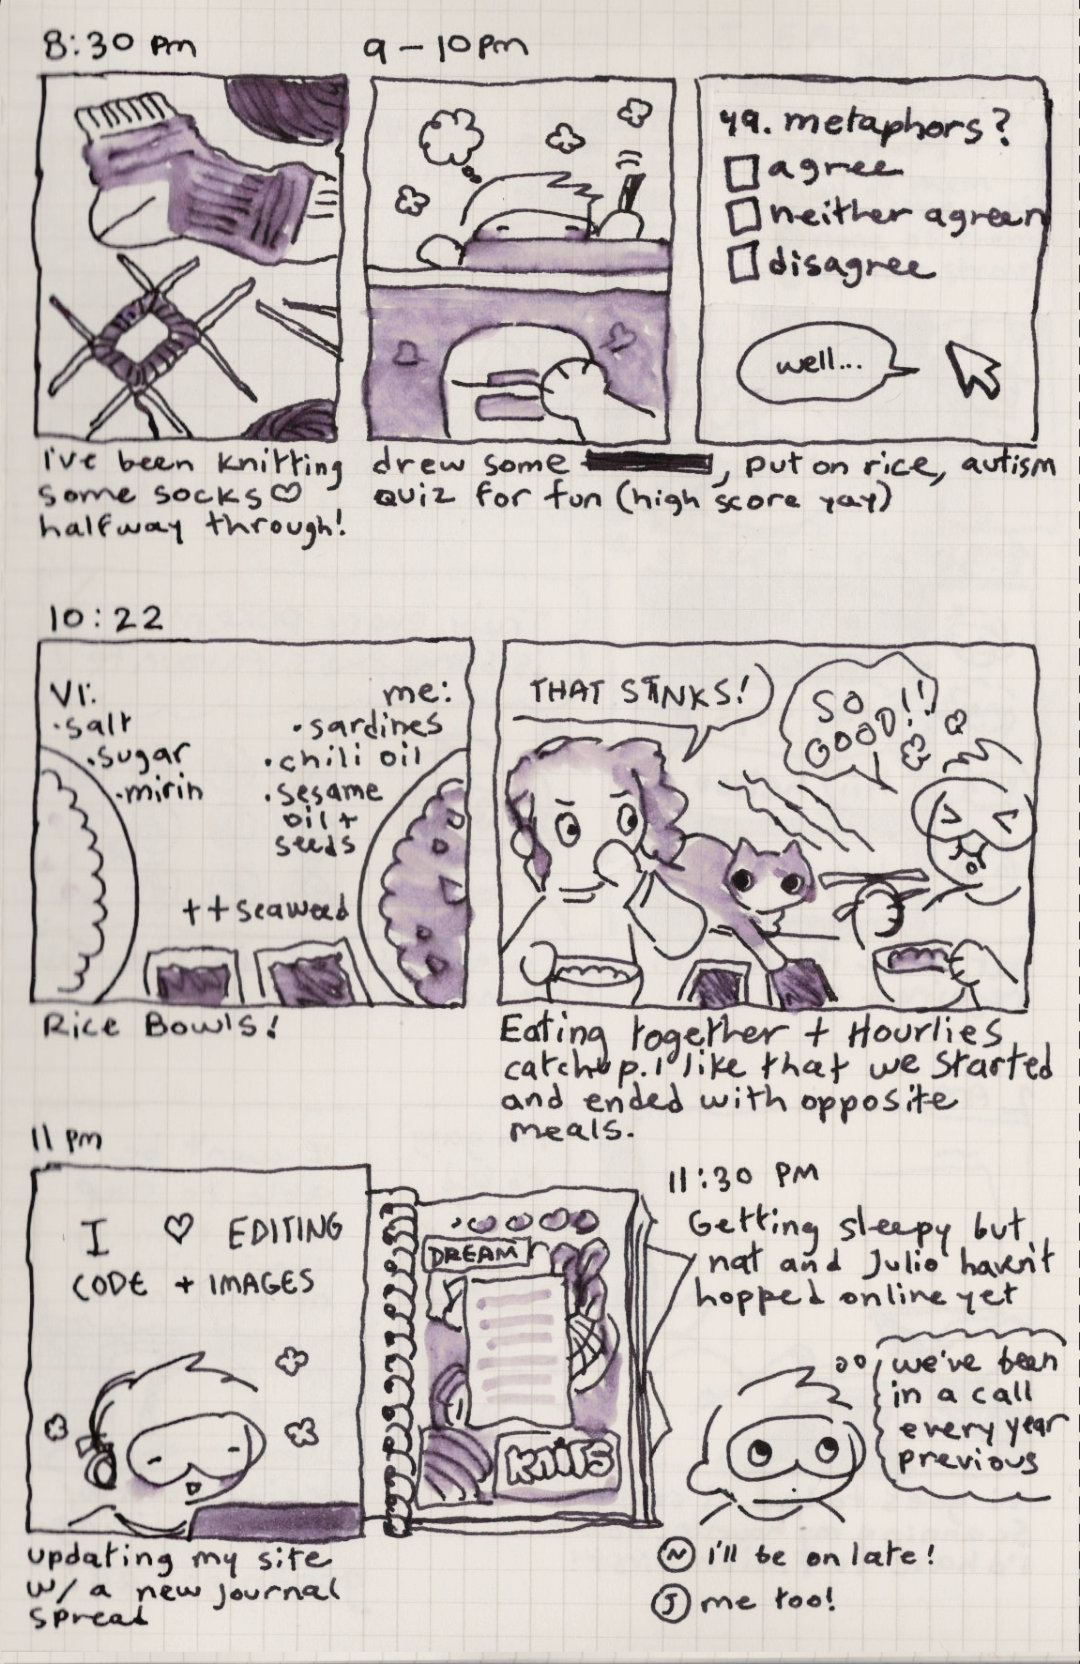 8:30 pm
I've been knitting
some socks♡
halfway through!
9 – 10pm
49. metaphors?
agree
neither agreen
disagree
well...
drew some , put on rice, autism
quiz for fun (high score yay)
10:22
VI:
·salt
·sugar
·mirin
me:
·sardines
·chili oil
·sesame
oil +
seeds
++seaweed
Rice Bowls!
THAT STINKS!
SO
GOOD!!
Eating together + Hourlies
catchup. I like that we started
and ended with opposite
meals.
11 pm
I ♡ EDITING
CODE + IMAGES
updating my site
w/ a new journal
spread
DREAM
knits
11:30 PM
Getting sleepy but
nat and Julio haven't
hopped online yet
we've been
in a call
every year
previous
N i'll be on late!
J me too!